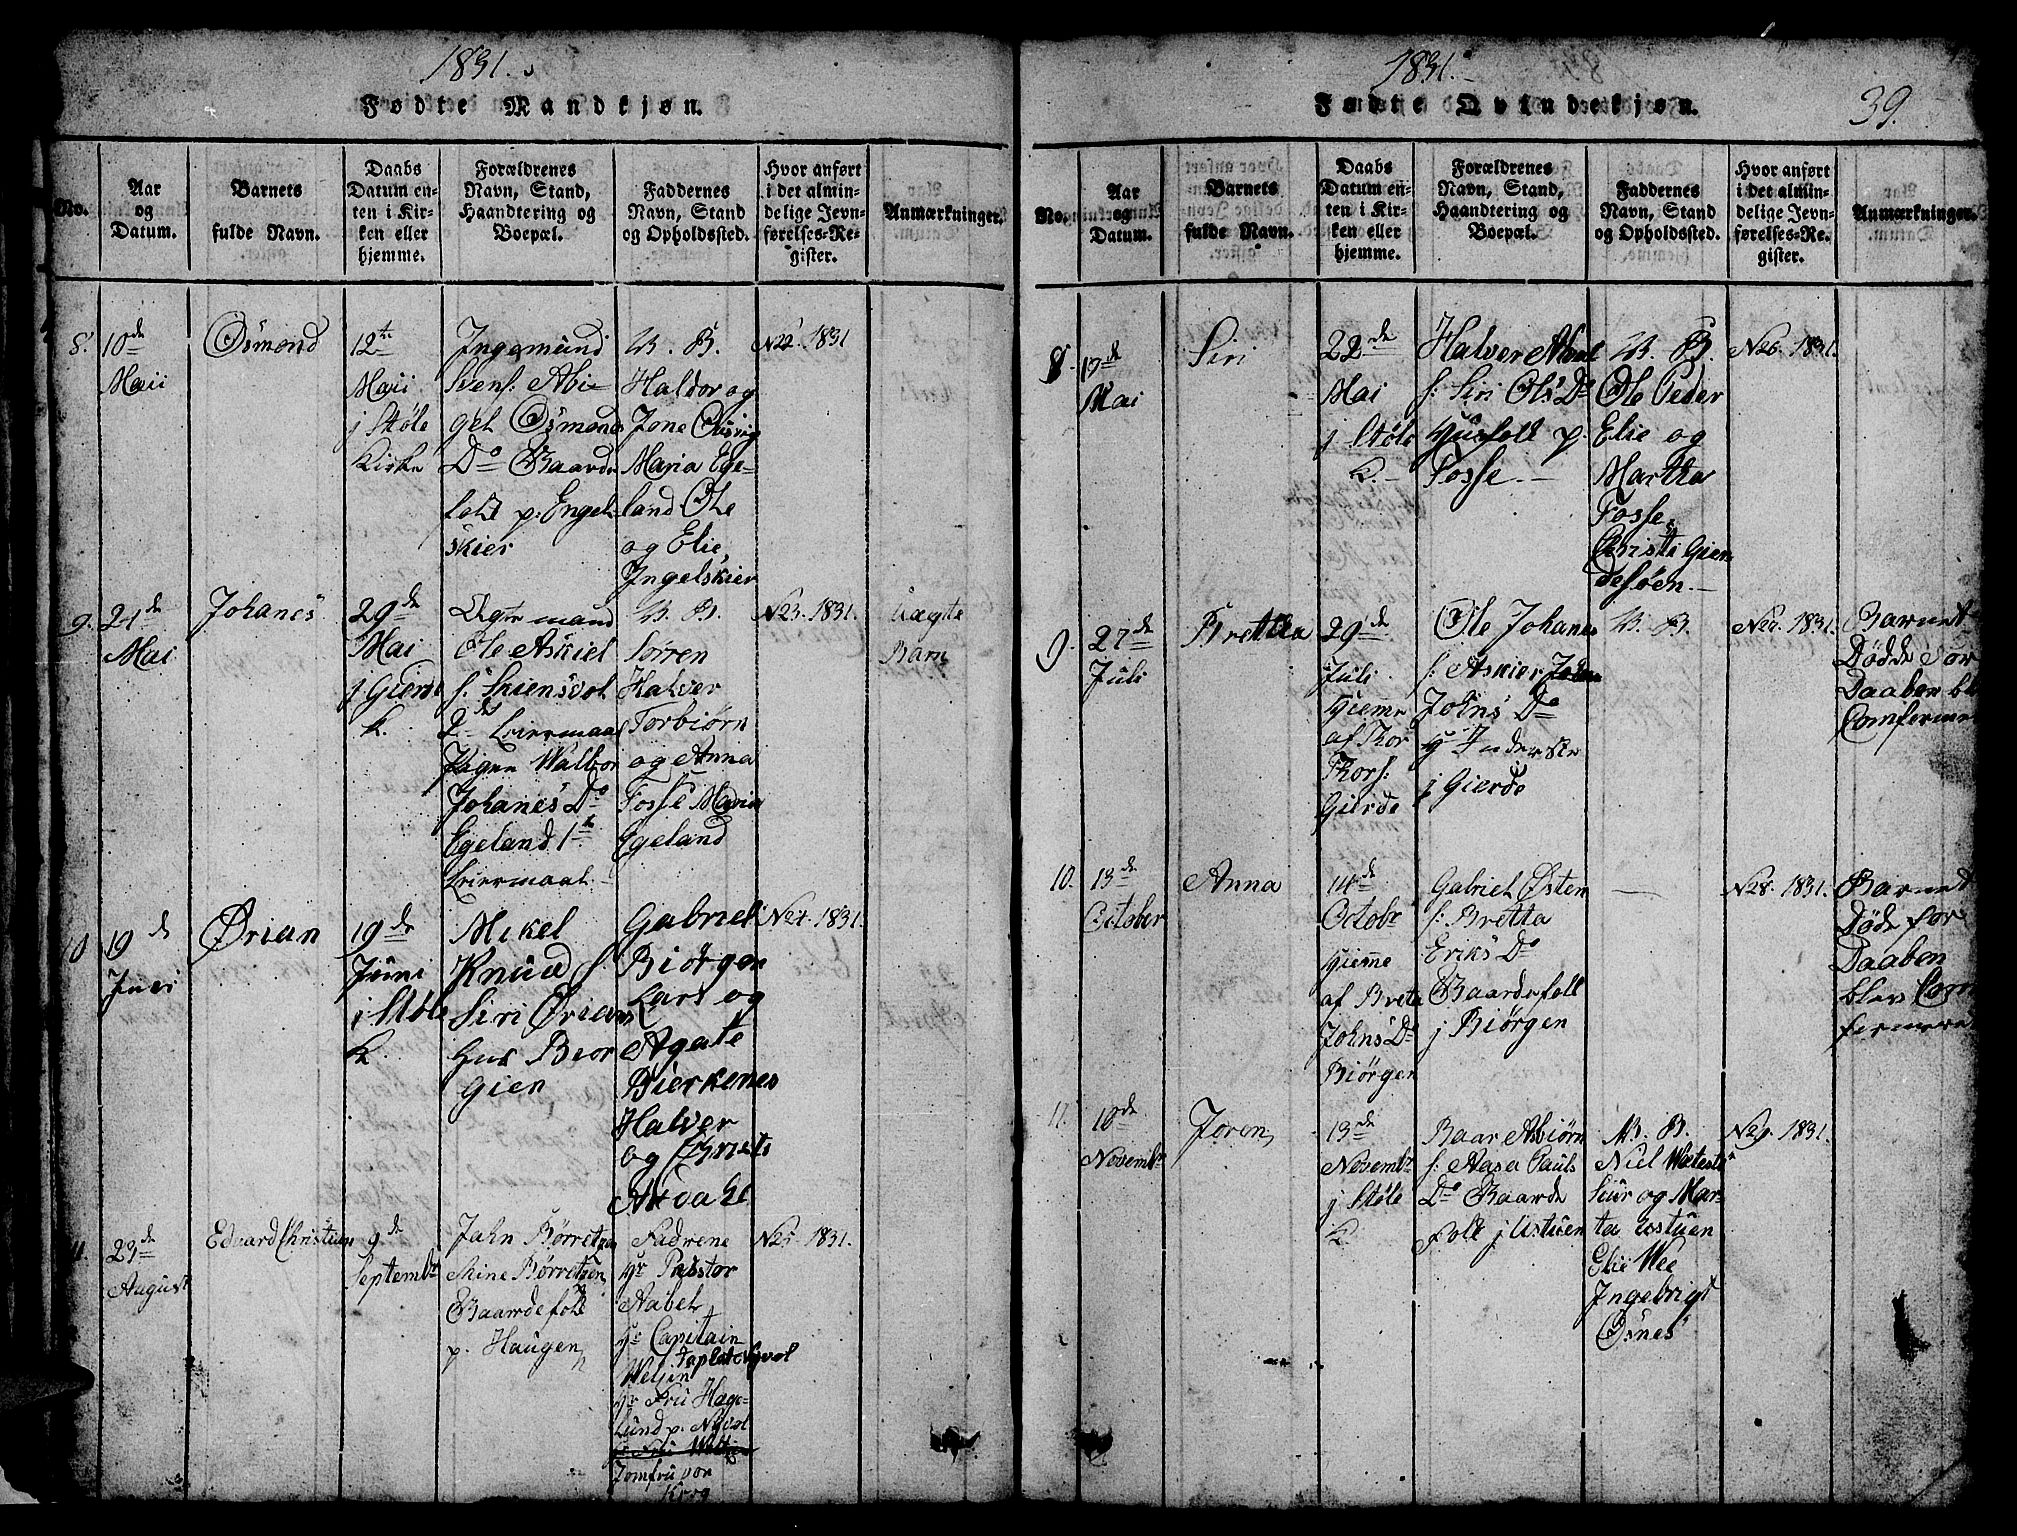 1831.
Fødte Mandkjøn.
No.
Aar
og
Datum.
Barnets
fulde Navn.
Daabs
Datum en-
ten i Kir-
ken eller
hjemme.
Forældrenes
Navn, Stand,
Haandtering og
Boepæl.
Faddernes
Navn, Stand
og Opholdssted.
Hvor anført
i det almin-
delige Jevn-
førelses-Re-
gister.
Anmærkninger.
8.
10de
Maii
Osmond
12te
Maii
j Støle
Kirke
Ingemund
Svens: Abi-
gel Osmonds
Do Baarde
folk p: Engel
skier
W. B.
Haldor og
Jone
Maria Ege-
land Ole
og Elie
Ingelskier
N22. 1831
9.
21de
Mai
Johanes
29de
Mai
j Gierde
K.
Ægte mand
Ole Askiel
s: Skiensvol
2de Leiermaal
Pigen Walbor
Johanes Do
Egeland 1te
Leiermaal
W. B.
Sørren
Halver
Torbiørn
og Anna
Fosse Maria
Egeland
N23. 1831.
Uægte
Barn
10
19de
Juni
Ørian
19de
Juni
j Støle
K.
Mikel
Knud s.
Siri Ørians
Hus Beor
gien
Gabriel
Biørgen
Lars og
Agate
Bierkenes
Halver
og
Ardahl
N24. 1831.
11.
23de
August
Eduard Christian
9de
Septembr
Jahn Børretzen
Stine Børretzen
Baardefolk
p. Haugen
Fadrene
Hr Passtor
Aabel
Hr Capitain
Weljen
Hr Fru Hage-
lund p. Nyvol
Jomfru von
Krog
N25. 1831.
1831.
39.
Fødte Qvindekjøn.
No.
Aar
og
Datum.
Barnets
fulde Navn.
Daabs
Datum en-
ten i Kir-
ken eller
hjemme.
Forældrenes
Navn, Stand,
Haandtering og
Boepæl.
Faddernes
Navn, Stand
og Opholdssted.
Hvor anført
i det almin-
delige Jevn-
førelses-Re-
gister.
Anmærkninger.
8.
13de
Mai
Siri
22de
Mai
j Støle
K.
Halver
s: Siri Ols Do
Husfolk p.
Fosse.
W. B.
Ole Peder
Elie og
Martha
Fosse
Christi Gien
desøen
N26. 1831.
9.
27de
Juli
Bretha
29de
Juli
Hieme
af Thor
Thors:
Gierde
Ole Johanes
s: Askier
Johns Do
Inderste
j Gierde
W. B.
1831.
Barnet
Døde for
Daaben blev
Comfermeret
10.
13de
October
Anna
14de
Octobr
Hieme
af Breta
Johns Do
Biørgen
Gabriel Østen
s: Bretta
Eriks Do
Baardefolk
j Biørgen
N28. 1831.
Barnet
Døde for
Daaben
blev Com
fermeret
11.
10de
Novembr
Joren
13de
Novembr
j Støle
K.
Baar Asbiørn
s: Aasa Pauls
Do Baarde
folk j Ustuen
W. B.
Niel
Suur og Mar-
ta Ustuen
Elie Wee
Ingebrigt
Osnes
N29. 1831.